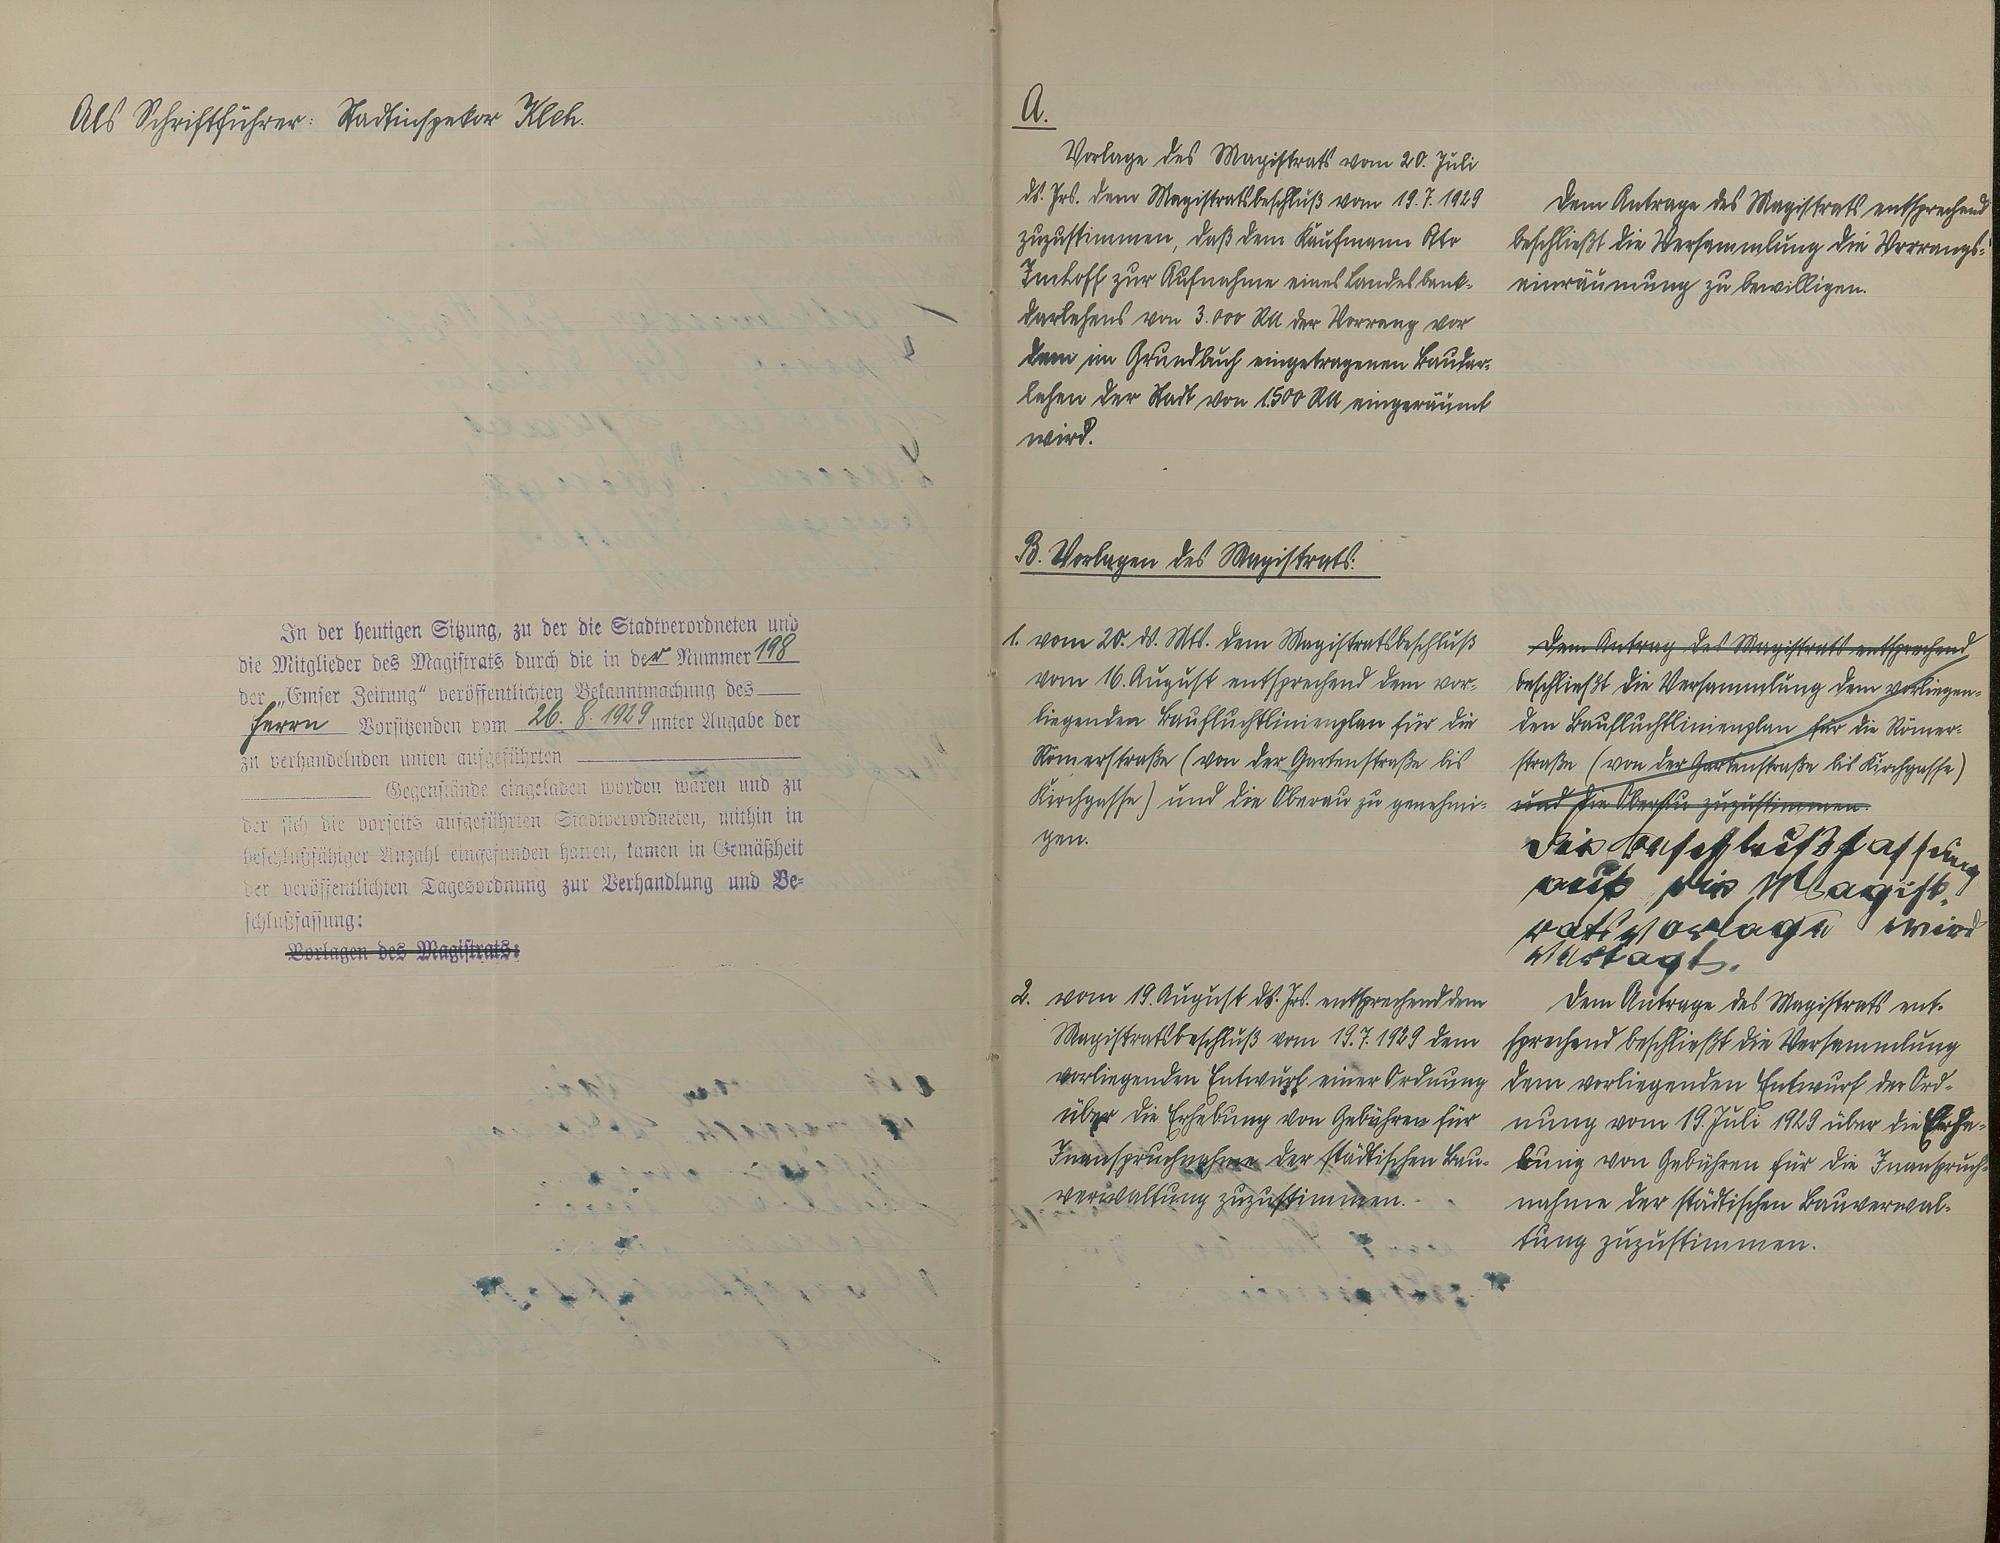 Als Schriftführer: Stadtinspektor Kleh.
In der heutigen Sitzung, zu der die Stadtverordneten und
die Mitglieder des Magistrats durch die in der Nummer 198
der „Emser Zeitung“ veröffentlichten Bekanntmachung des
Herrn Vorsitzenden vom 26. 8. 1929 unter Angabe der
zu verhandelnden unten aufgeführten
Gegenstände eingeladen worden waren und zu
der sich die vorseits aufgeführten Stadtverordneten, mithin in
beschlußfähiger Anzahl eingefunden hatten, kamen in Gemäßheit
der veröffentlichten Tagesordnung zur Verhandlung und Be-
schlußfassung:
Vorlagen des Magistrats:
A.
Vorlage des Magistrats vom 20. Juli
ds. Jrs. dem Magistratsbeschluß vom 19.7.1929
zuzustimmen, daß dem Kaufmann Otto
Imhoff zur Aufnahme eines Landesbank-
darlehens von 3.000 RM der Vorrang vor
dem im Grundbuch eingetragenen Baudar-
lehen der Stadt von 1500 RM eingeräumt
wird.
Dem Antrage des Magistrats entsprechend
beschließt die Versammlung die Vorrangs-
einräumung zu bewilligen.
B. Vorlagen des Magistrats:
1. vom 20. ds. Mts. dem Magistratsbeschluß
vom 16. August entsprechend dem vor-
liegenden Baufluchtlinienplan für die
Römerstraße (von der Gartenstraße bis
Kirchgasse) und die Oberau zu genehmi-
gen.
Dem Antrag des Magistrats entsprechend
beschließt die Versammlung dem vorliegen-
den Baufluchtlinienplan für die Römer-
straße (von der Gartenstraße bis Kirchgasse)
und die Oberau zuzustimmen.
Die Beschlußfassung
auf die Magist-
ratsvorlage wird
vertagt.
2. vom 19. August ds. Jrs. entsprechend dem
Magistratsbeschluß vom 19.7.1929 dem
vorliegenden Entwurf einer Ordnung
über die Erhebung von Gebühren für
Inanspruchnahme der städtischen Bau-
verwaltung zuzustimmen.
Dem Antrage des Magistrats ent-
sprechend beschließt die Versammlung
dem vorliegenden Entwurf der Ord-
nung vom 19. Juli 1929 über die Erhe-
bung von Gebühren für die Inanspruch-
nahme der städtischen Bauverwal-
tung zuzustimmen.